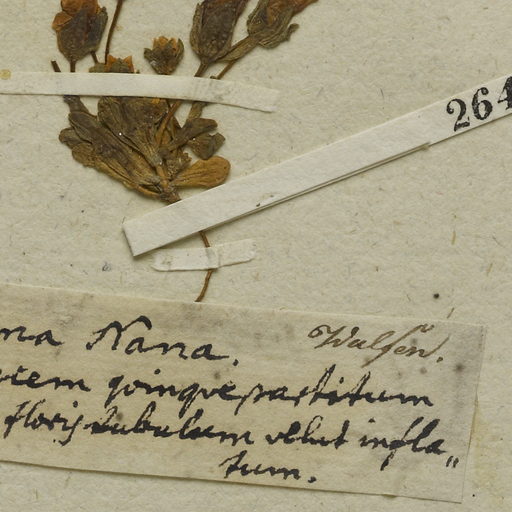 264
ma Nana. Walsen.
iem quinquepartitum
floris tubulum velut infla„
tum.